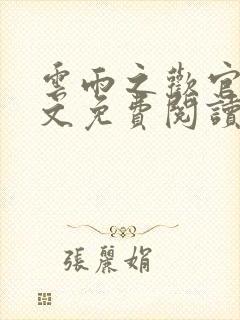 雲雨之歡官
文免費閱讀
張麗娟